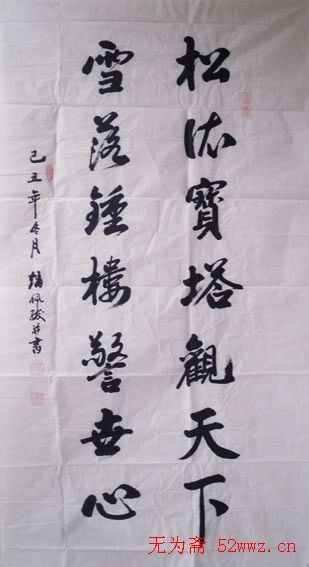 松依寶塔觀天下
雪落鍾樓警世心
己丑年冬月
无为斋 52wwz.cn